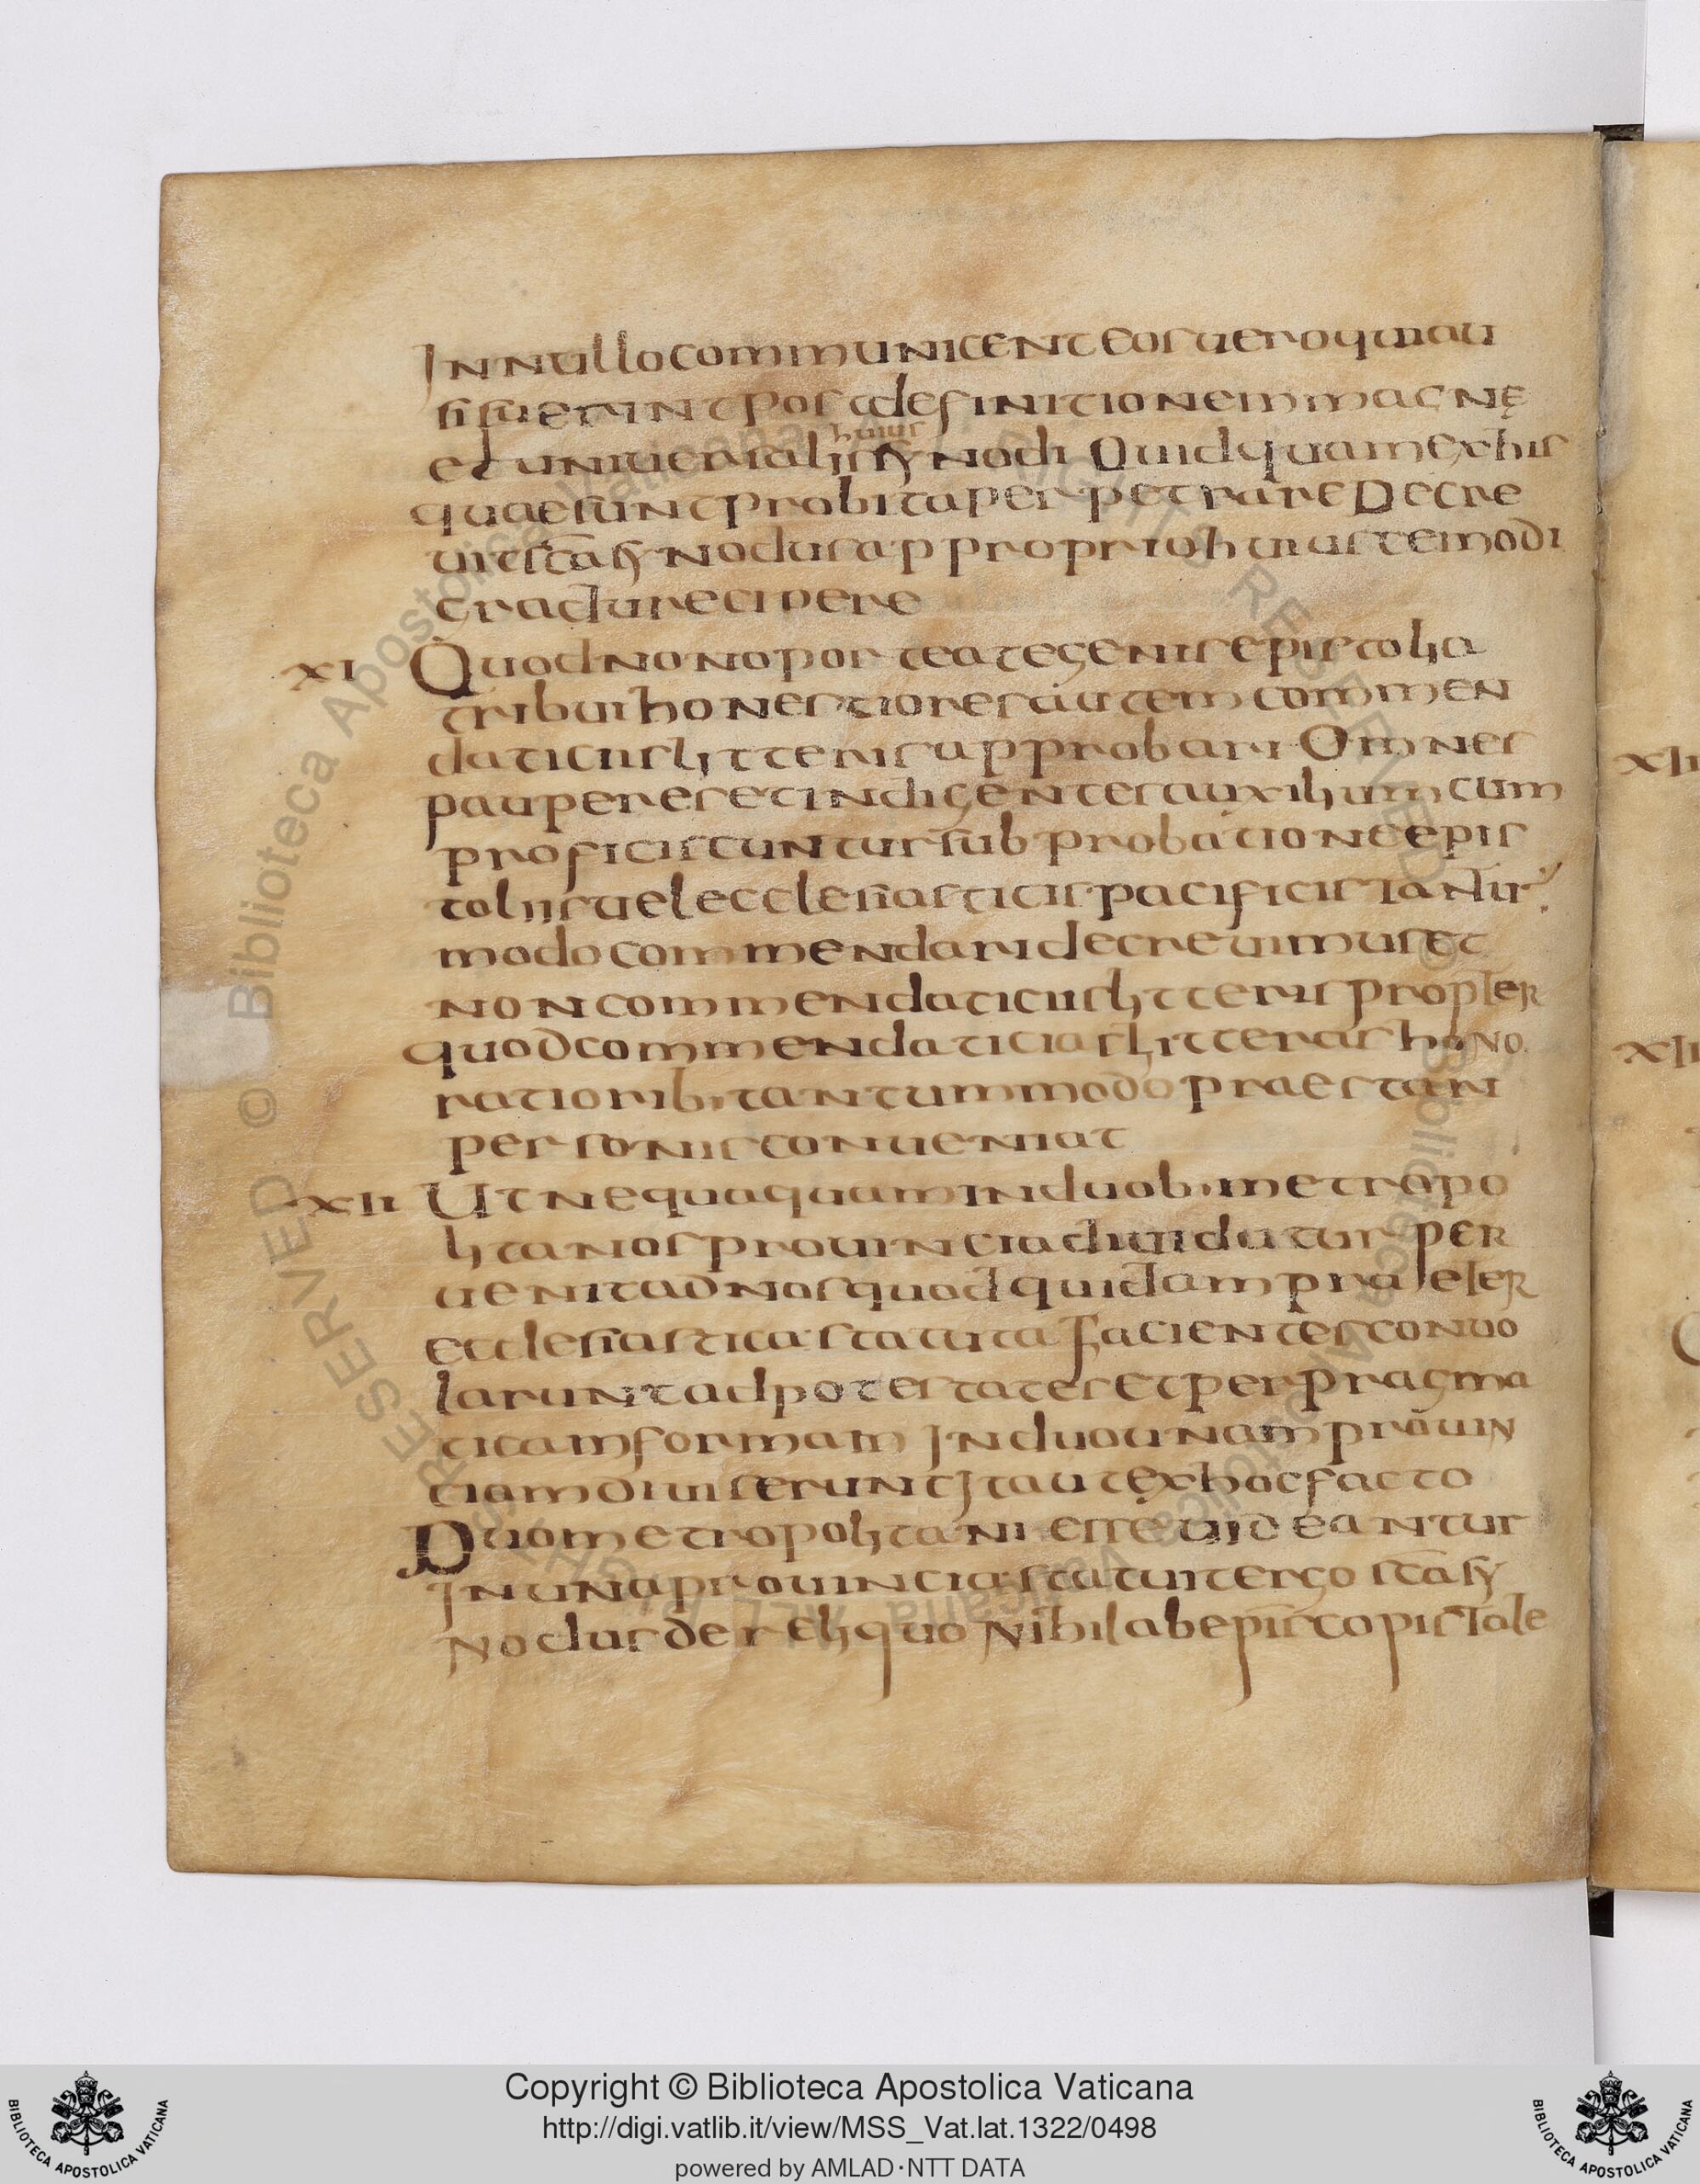 In nullo communicent eos uero qui au
si fuerint post definitionem magnę
huius
et uniuersalis synodi Quidquam ex his
quae sunt probita perpetrare Decre
uit sc̄a synodus a p proprio huiustemodi
gradu recipere
XI Quod non oporteat egenis epistolia
tribui honestiores autem commen
daticiis litteris approbari Omnes
pauperes et indigentes auxilium cum
proficiscuntur sub probatione epis
toliis uel ecclesiasticis pacificis Tantū
modo commendari decreuimus et
non commendaticiis litteris propter
quod commendaticias litteras hono
ratiorib· tantummodo praestari
personis conueniat
XII Ut nequaquam in duob· metropo
litanos prouincia diuidatur per
uenit ad nos quod quidam praeter
ecclesiastica statuta facientes conuo
larunt ad potestates Et per pragma
ticam formam In duo unam prouin
ciam diuiserunt Ita ut ex hoc facto
Duo metropolitani esse uideantur
In una prouincia statuit ergo sc̄a sy
nodus de reliquo Nihil ab episcopis Tale
XII
XII
Copyright © Biblioteca Apostolica Vaticana
http://digi.vatlib.it/view/MSS_Vat.lat.1322/0498
powered by AMLAD·NTT DATA
BIBLIOTECA APOSTOLICA VATICANA
BIBLIOTECA APOSTOLICA VATICANA